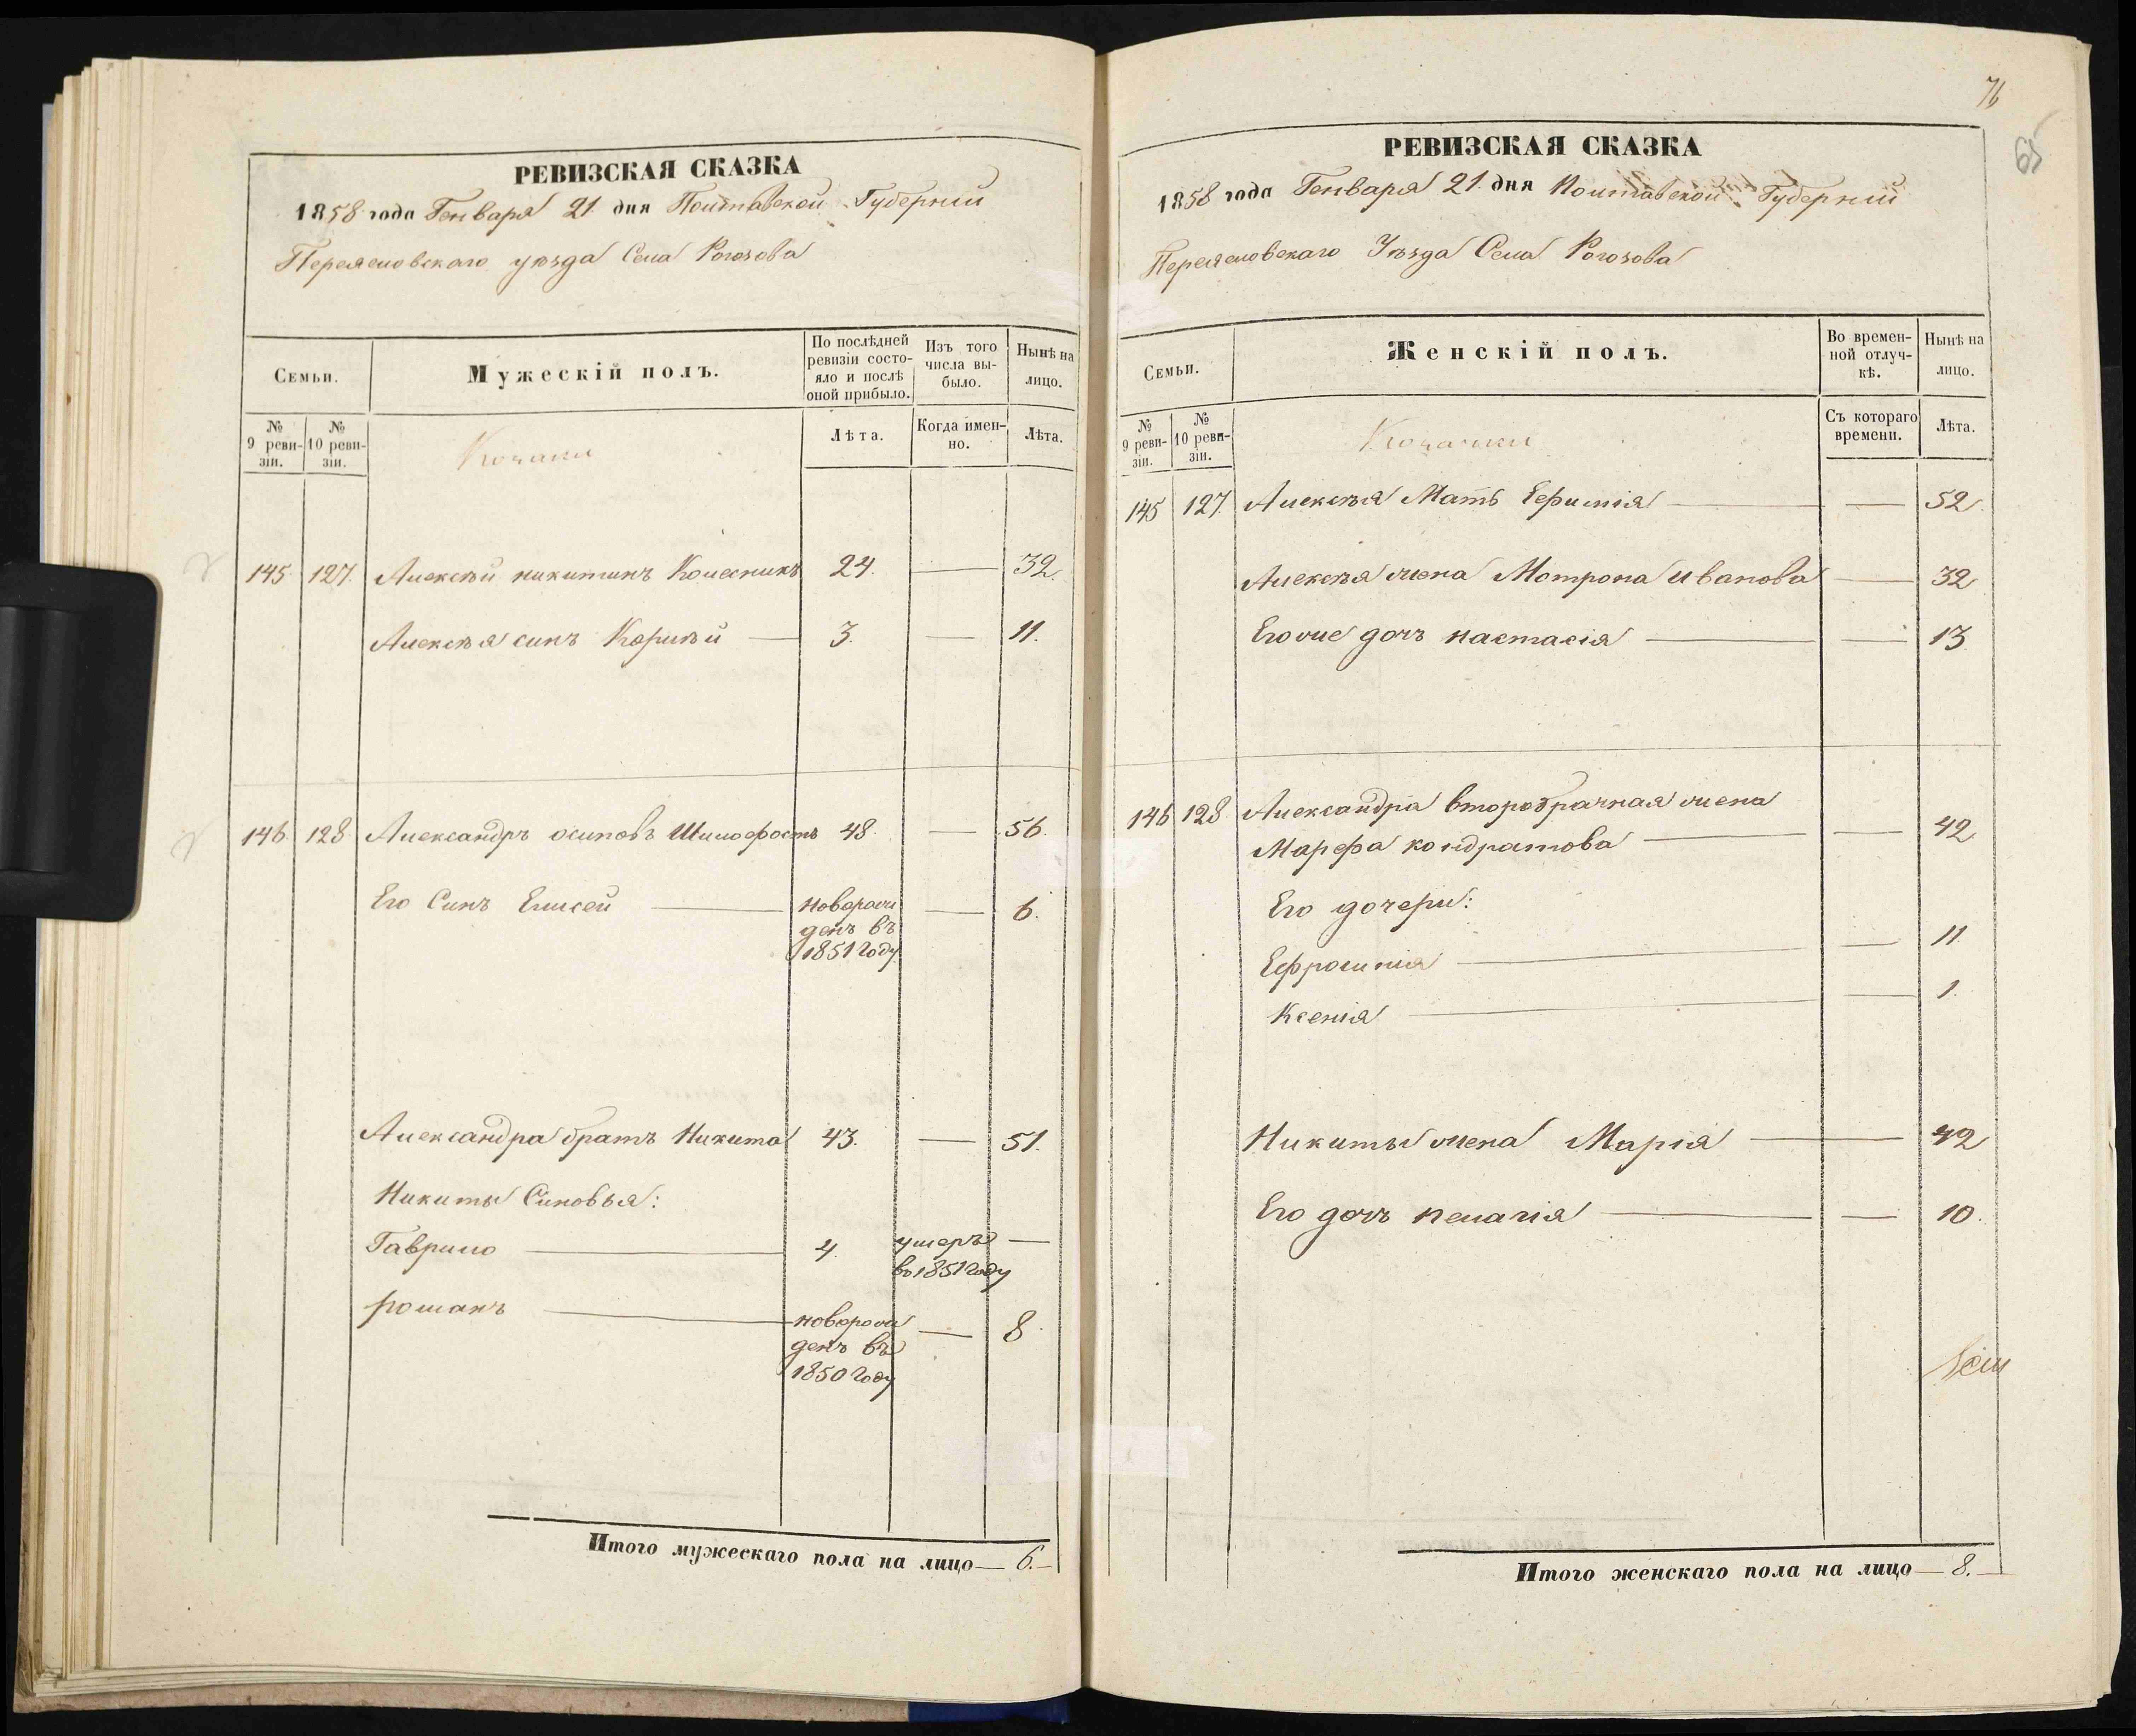 РЕВИЗСКАЯ СКАЗКА
1858 года Генваря 21 дня Полтавской Губернии
Переяславскаго уѣзда Села Рогозова
Семьи.
Мужескій полъ.
По послѣдней ревизіи состояло и послѣ оной прибыло.
Изъ того числа выбыло.
Нынѣ на лицо.
№ 9 ревизіи.
№ 10 ревизіи.
Козаки
Лѣта.
Когда именно.
Лѣта.
145 127. Алексѣй никитинъ Колесникъ 24. — 32.
Алексѣя синъ Корнѣй — 3. — 11.
146 128 Александръ осиповъ Шилофостъ 48. — 56.
Его Синъ Елисей — новорож — 6.
денъ въ
1851 году
Александра братъ Никита 43. — 51.
Никиты Синовья:
Гаврило — 4. умеръ —
во 1851 году
романъ — новорож — 8
денъ въ
1850 году
Итого мужескаго пола на лицо — 6. —
76
65
РЕВИЗСКАЯ СКАЗКА
1858 года Генваря 21 дня Полтавской Губернии
Переяславскаго Уѣзда Села Рогозова
Семьи.
Женскій полъ.
Во временной отлучкѣ.
Нынѣ на лицо.
№ 9 ревизіи.
№ 10 ревизіи.
Козачки
Съ котораго времени.
Лѣта.
145 127. Алексѣя Мать Ефимія — — 52.
Алексѣя жена Мотрона иванова — 32
Его же дочь настасія — — 13
146 128 Александра второбрачная жена
Марфа кондратова — — 42
Его дочери:
Ефросинія — — 11.
Ксенія — — 1.
Никиты жена Марія — 42
Его дочь пелагія — — 10.
Итого женскаго пола на лицо — 8. —